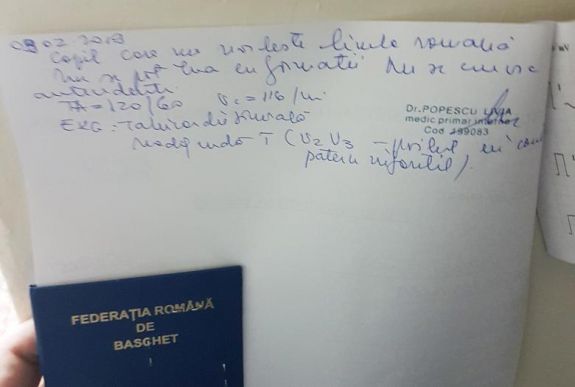 09 02 2018
Copil care nu vorbește limba română
Nu se pot lua informatii Nu se cunosc
antecedente
TA = 120/60 VC = 116 /min
EKG: Tahicardie sinusală
T (V2 V3 - posibil in
pattern
Dr. POPESCU LIVIA
medic primar interne
Cod 499083
FEDERAȚIA ROMÂNĂ
DE
BASCHET